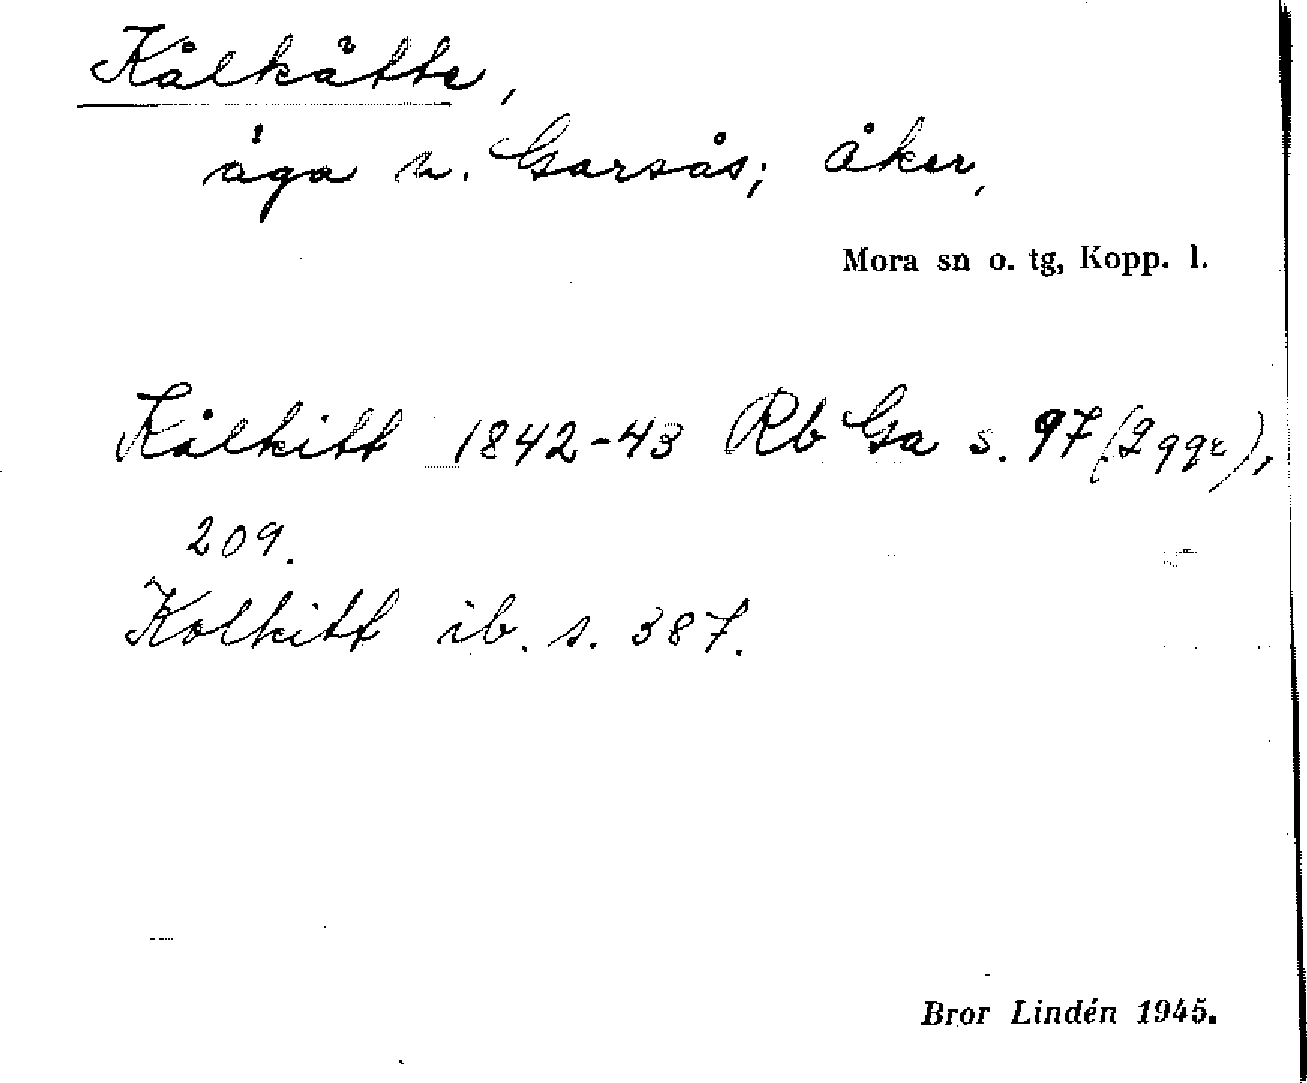 Kålkåtte,
åga n. Garsås; åker,
Mora sn o. tg, Kopp. l.
Kålkitt 1842-43 Rb Ga s. 97 (2 ggr),
209.
Kolkitt ib. s. 387.
Bror Lindén 1945.